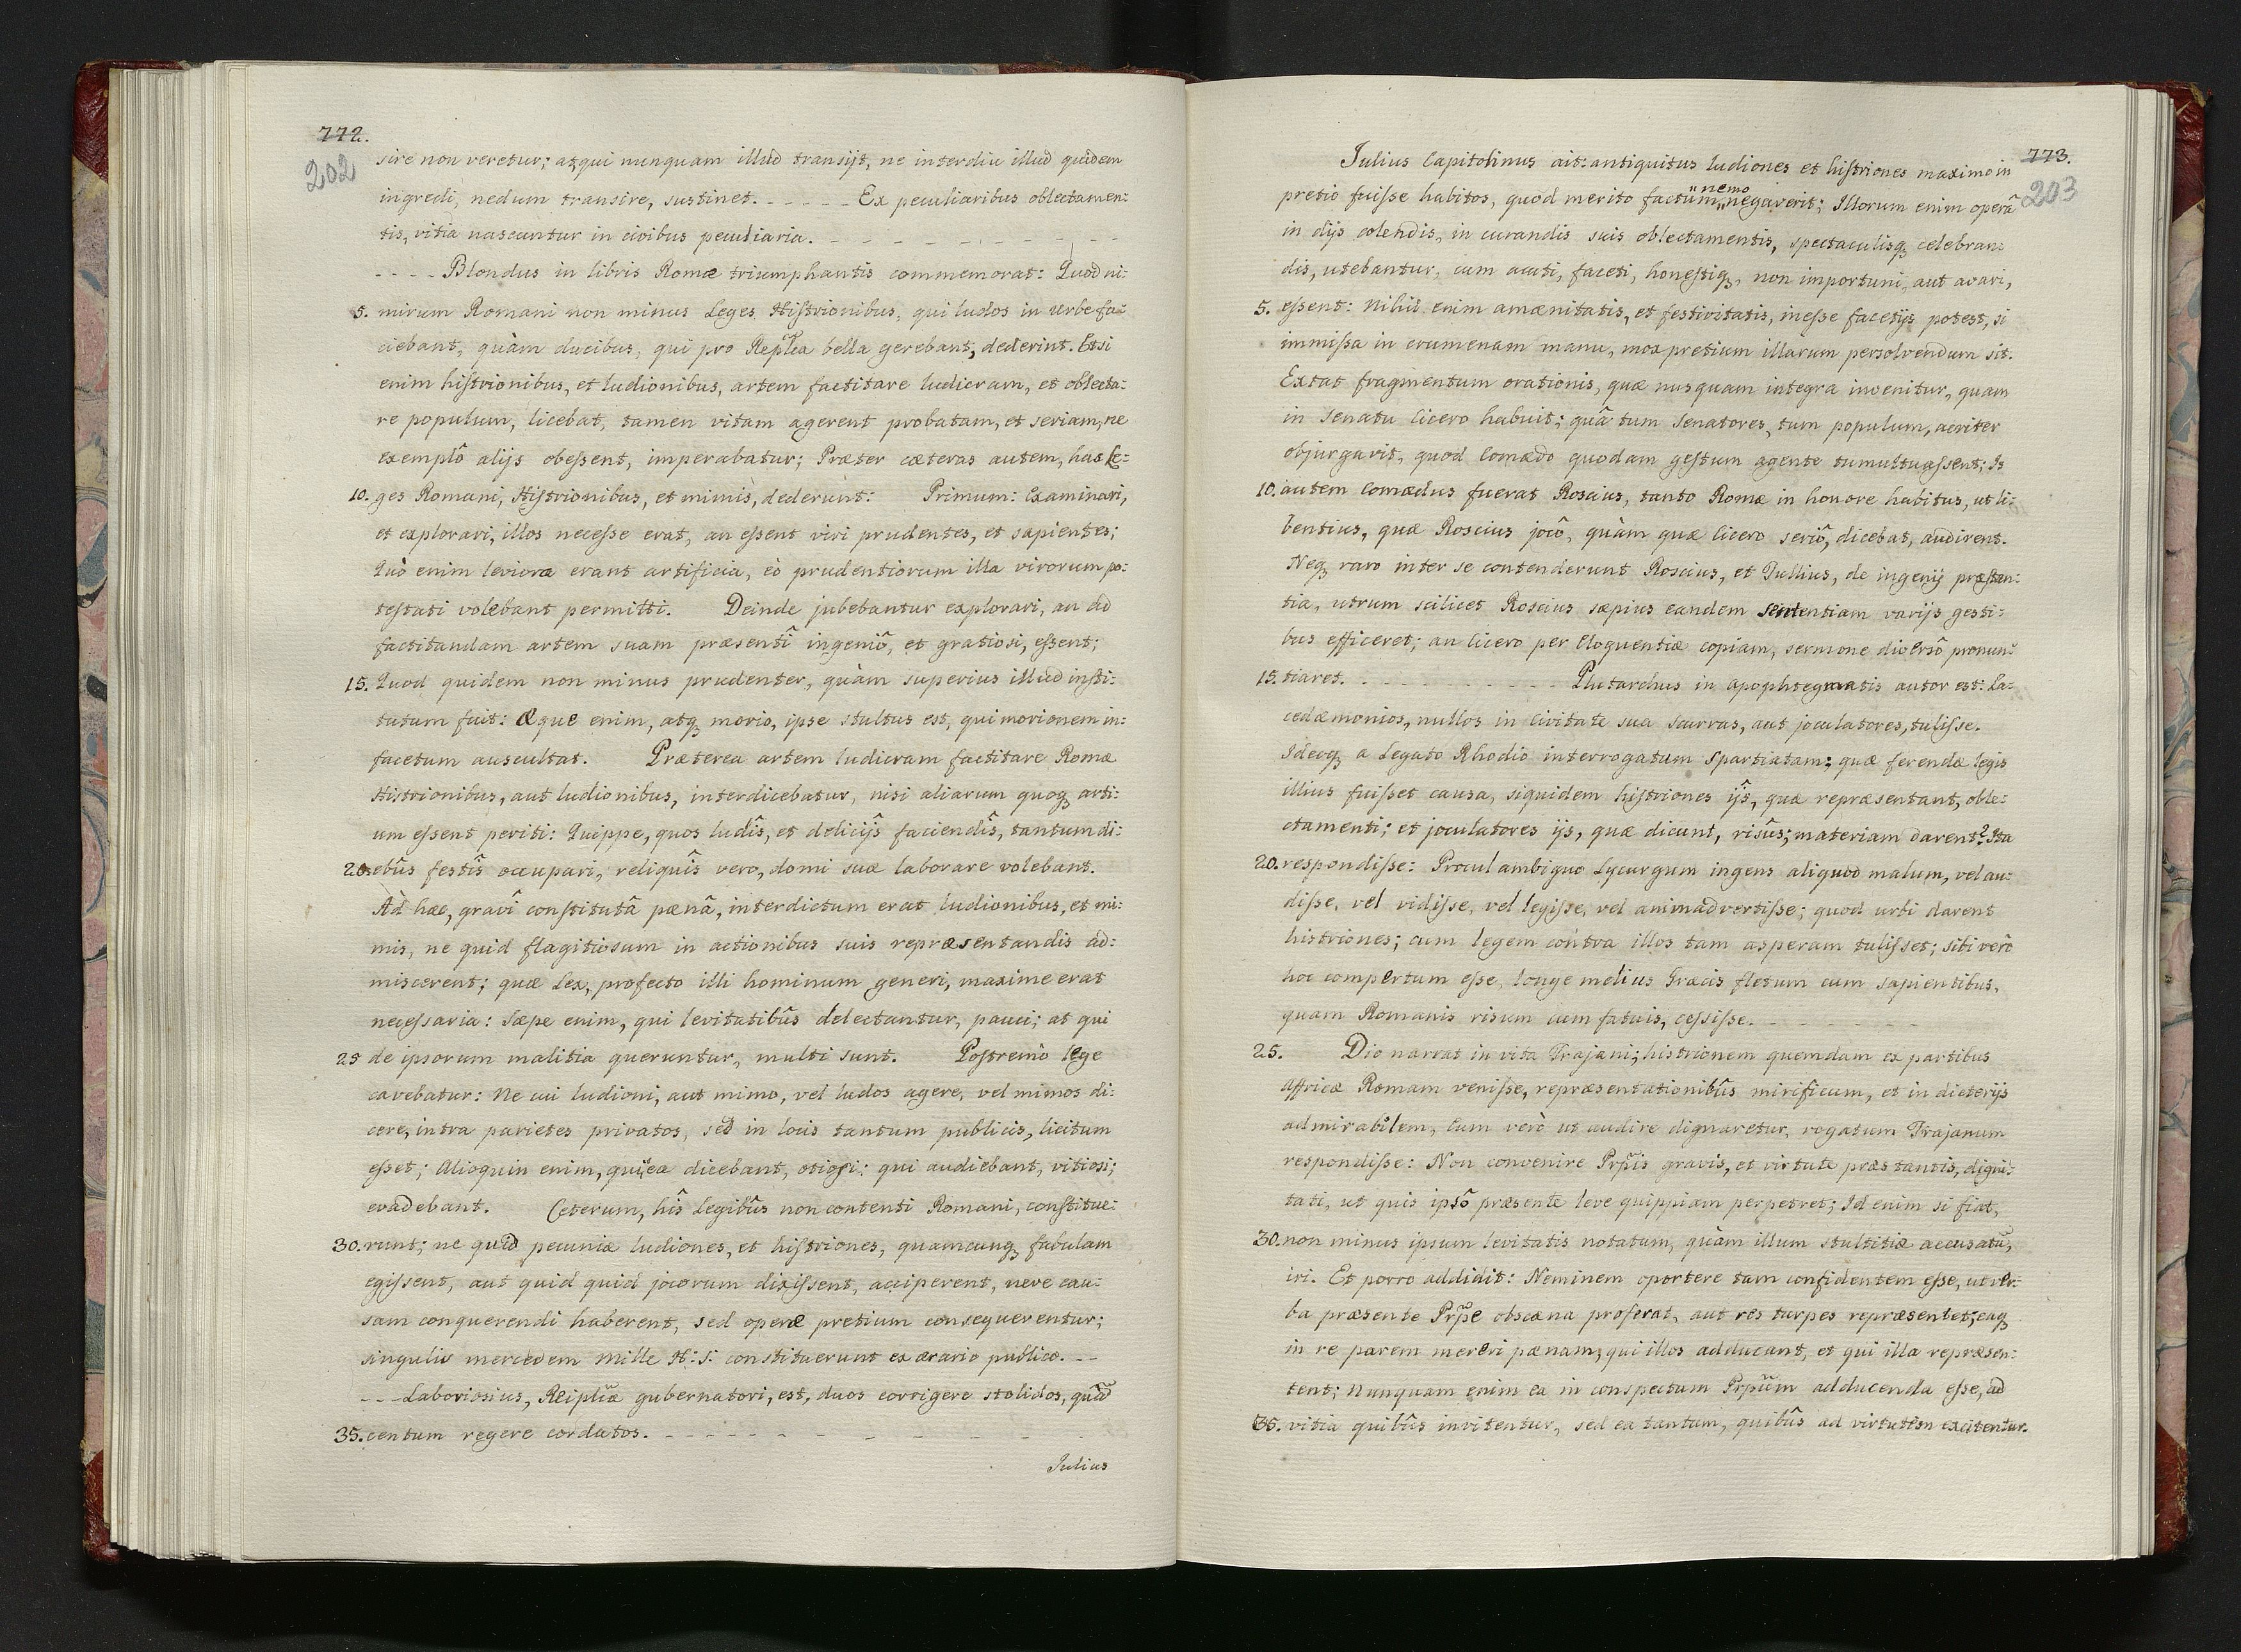 772.
202
sire non veretur; atqui nunquam illud transijt, ne interdiu illud quidem
ingredi, nedum transire, sustinet. - - - - - Ex peculiaribus oblectamen:
tis, vitia nascuntur in civibus peculiaria. - - - - - - - - -
- - - - Blondus in libris Romæ triumphantis commemorat: Quod ni:
5. mirum Romani non minus Leges Histrionibus, qui ludos in urbe fa:
ciebant, quàm ducibus, qui pro Repl̃ca bella gerebant, dederint. Etsi
enim histrionibus, et ludionibus, artem factitare ludicram, et oblecta:
re populum, licebat, tamen vitam agerent probatam, et seriam, ne
exemplô alijs obessent, imperabatur; Præter cæteras autem, has le:
10. ges Romani, Histrionibus, et mimis, dederunt: Primum: Examinari,
et explorari, illos necesse erat, an essent viri prudentes, et sapientes;
Quò enim leviora erant artificia, eò prudentiorum illa virorum po:
testati volebant permitti. Deinde jubebantur explorari, an ad
factitandam artem suam præsentî ingeniô, et gratiosi, essent;
15. Quod quidem non minus prudenter, quàm superius illud insti:
tutum fuit: Æque enim, atq̨ morio, ipse stultus est, qui morionem in:
facetum auscultat. Præterea artem ludicram factitare Romæ
Histrionibus, aut ludionibus, interdicebatur, nisi aliarum quoq̨ arti:
um essent periti: Quippe, quos ludîs, et delicijs̑ faciendîs, tantum di:
20. ebûs festîs occupari, reliquîs vero, domi suæ laborare volebant.
Ad hæc, gravî constitutâ pænâ, interdictum erat ludionibus, et mi:
mis, ne quid flagitiosum in actionibus suis repræsentandis ad:
miscerent; quæ Lex, profecto illi hominum generi, maxime erat
necessaria: Sæpe enim, qui levitatibûs delectantur, pauci; at qui
25 de ipsorum malitia queruntur, multi sunt. Postremò lege
cavebatur: Ne cui ludioni, aut mimo, vel ludos agere, vel mimos di:
cere, intra parietes privatos, sed in locis tantum publicis, licitum
esset; Alioquin enim, qui ea dicebant, otiosi: qui audiebant, vitiosi;
evadebant. Ceterum, hîs Legibûs non contenti Romani, constitue:
30. runt; ne quid pecuniæ ludiones, et histriones, quamcunq̨ fabulam
egissent, aut quid quid jocorum dixissent, acciperent, neve cau:
sam conquerendi haberent, sed operæ pretium consequerentur;
singulis mercedem mille H: S: constituerunt ex ærario publico. - -
- - - Laboriosius, Reipl̃cæ gubernatori, est, duos corrigere stolidos, quàm
35. centum regere cordatos. - - - - - - - - - - -
Julius
773.
203
Julius Capitolinus ait: antiquitus ludiones et histriones maximo in
nemo
pretio fuisse habitos, quod merito factum,, negaverit; Illorum enim operâ
in dijs colendis, in curandis suis oblectamentis, spectaculisq̨ celebran:
dis, utebantur, cum acuti, faceti, honestiq̨, non importuni, aut avari,
5. essent: Nihil enim amænitatis, et festivitatis, inesse facetijs potest, si
immissa in crumenam manu, mox pretium illarum persolvendum sit.
Extat fragmentum orationis, quæ nusquam integra invenitur, quam
in Senatu Cicero habuit; quâ tum Senatores, tum populum, acriter
objurgavit, quod Comædo quodam gestum agente tumultuassent; Is
10. autem Comædus fuerat Roscius, tanto Romæ in honore habitus, ut li:
bentius, quæ Roscius jocô, quàm quæ Cicero seriô, dicebat, audirent.
Neq̨ raro inter se contenderunt Roscius, et Tullius, de ingenij præstan:
tia, utrum scilicet Roscius sæpius eandem sententiam varijs gesti:
bus efficeret; an Cicero per Eloquentiæ copiam, sermone diversô pronun:
15. tiaret. - - - - - - - - - Plutarchus in Apophtegmatis autor est: La:
cedæmonios, nullos in civitate sua scurras, aut joculatores, tulisse.
Ideoq̨ a Legato Rhodio interrogatum Spartiatam; quæ ferendæ legis
illius fuisset causa, siquidem histriones ijs̑, quæ repræsentant, oble:
ctamenti; et joculatores ijs, quæ dicunt, risûs; materiam darent? Ita
20. respondisse: Procul ambiguo Lycurgum ingens aliquod malum, vel au:
disse, vel vidisse, vel legisse, vel animadvertisse; quod urbi darent
histriones; cum legem contra illos tam asperam tulisset; sibi verò
hoc compertum esse, longe melius Græcis fletum cum sapientibus,
quam Romanis risum cum fatuis, cessisse. - - - - - - -
25. Dio narrat in vita Trajani; histrionem quemdam ex partibus
Affricæ Romam venisse, repræsentationibûs mirificum, et in dicterijs
admirabilem, Eum verò ut audire dignaretur, rogatum Trajanum
respondisse: Non convenire Prp̃is gravis, et virtute præstantis, digni:
tati, ut quis ipsô præsente leve quippiam perpetret; Id enim si fiat,
30. non minus ipsum levitatis notatum, quàm illum stultitiæ accusatũ,
iri. Et porro addidit: Neminem oportere tam confidentem esse, ut ver:
ba præsente Prp̃e obscæna proferat, aut res turpes repræsentet; eaq̨
in re parem mereri pænam, qui illos adducant, et qui illa repræsen:
tent; Nunquam enim ea in conspectum Prp̃um adducenda esse, ad
35. vitia quibûs invitentur, sed ea tantum, quibûs ad virtutem excitentur.